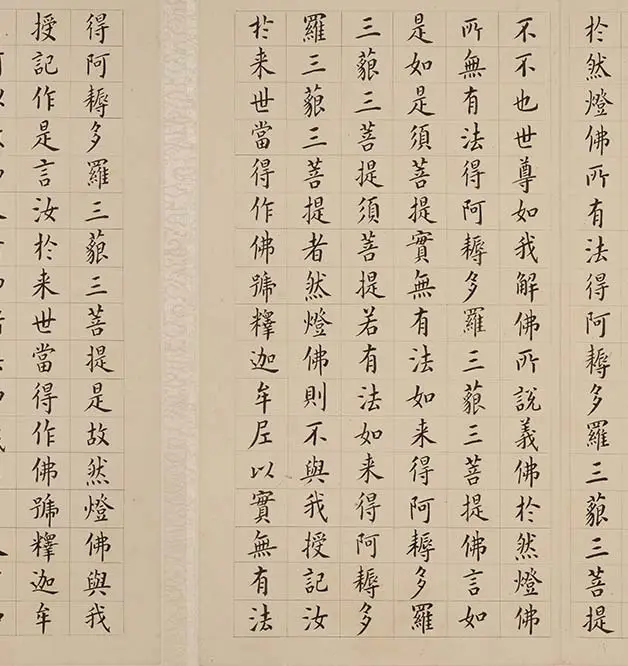 於然燈佛所有法得阿耨多羅三藐三菩提
不不也世尊如我解佛所說義佛於然燈佛
所無有法得阿耨多羅三藐三菩提佛言如
是如是須菩提實無有法如来得阿耨多羅
三藐三菩提須菩提若有法如来得阿耨多
羅三藐三菩提者然燈佛則不與我授記汝
於来世當得作佛號釋迦牟尼以實無有法
得阿耨多羅三藐三菩提是故然燈佛與我
授記作是言汝於来世當得作佛號釋迦牟